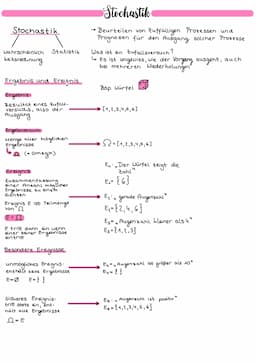 Stochastik
Stochastik
→ Beurteilen von zufälligen Prozessen und
Prognosen für den Ausgang solcher Prozesse
Wahrscheinlich
Statistik
Was ist ein Zufallsversuch?
→ Es ist ungewiss, wie der Vorgang ausgeht, auch
bei mehreren Wiederholungen
Ergebnis und Ereignis
Bsp. Würfel
Ergebnis
Resultat eines Zufalls-
versuchs, also der
Ausgang
{1,2,3,4,5,6}
Ergebnisraum
Menge aller möglichen
Ergebnisse
Ω={1,2,3,4,5,6}
(= Omega)
Ereignis
Zusammenfassung
einer Anzahl möglicher
Ergebnisse zu einem
Ganzen
"Der Würfel zeigt die
Zahl"
Ereignis E ist Teilmenge
von Ω
"gerade Augenzahl"
={2,4,6}
"Augenzahl kleiner als 4"
={1,2,3}
E tritt dann ein wenn
einer seiner Ergebnisse
eintritt
Besondere Ereignisse
unmögliches Ereignis
enthält kein Ergebnis
E=Ø E={ }
"Augenzahl ist größer als 10"
={ }
sicheres Ereignis
tritt stets ein
"Augenzahl ist positiv"
={1,2,3,4,5,6}
Ω=E